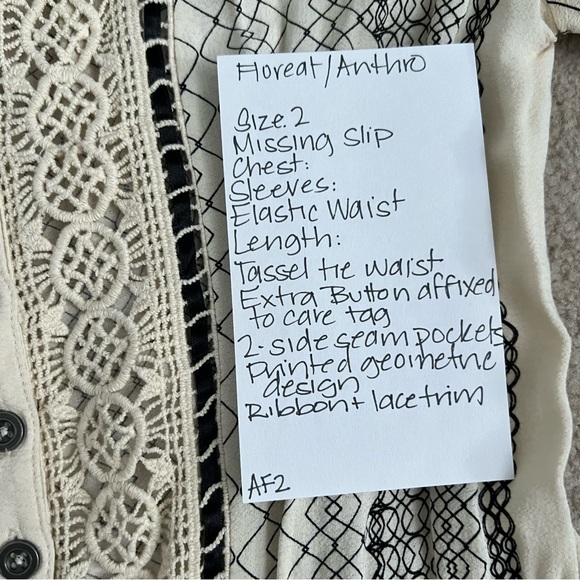 Floreat/Anthro
Size 2
Missing Slip
Chest:
Sleeves:
Elastic Waist
Length:
Tassel tie waist
Extra Button affixed
to care tag
2-side seam pockets
Printed geometric
design
Ribbon + lace trim
AF2